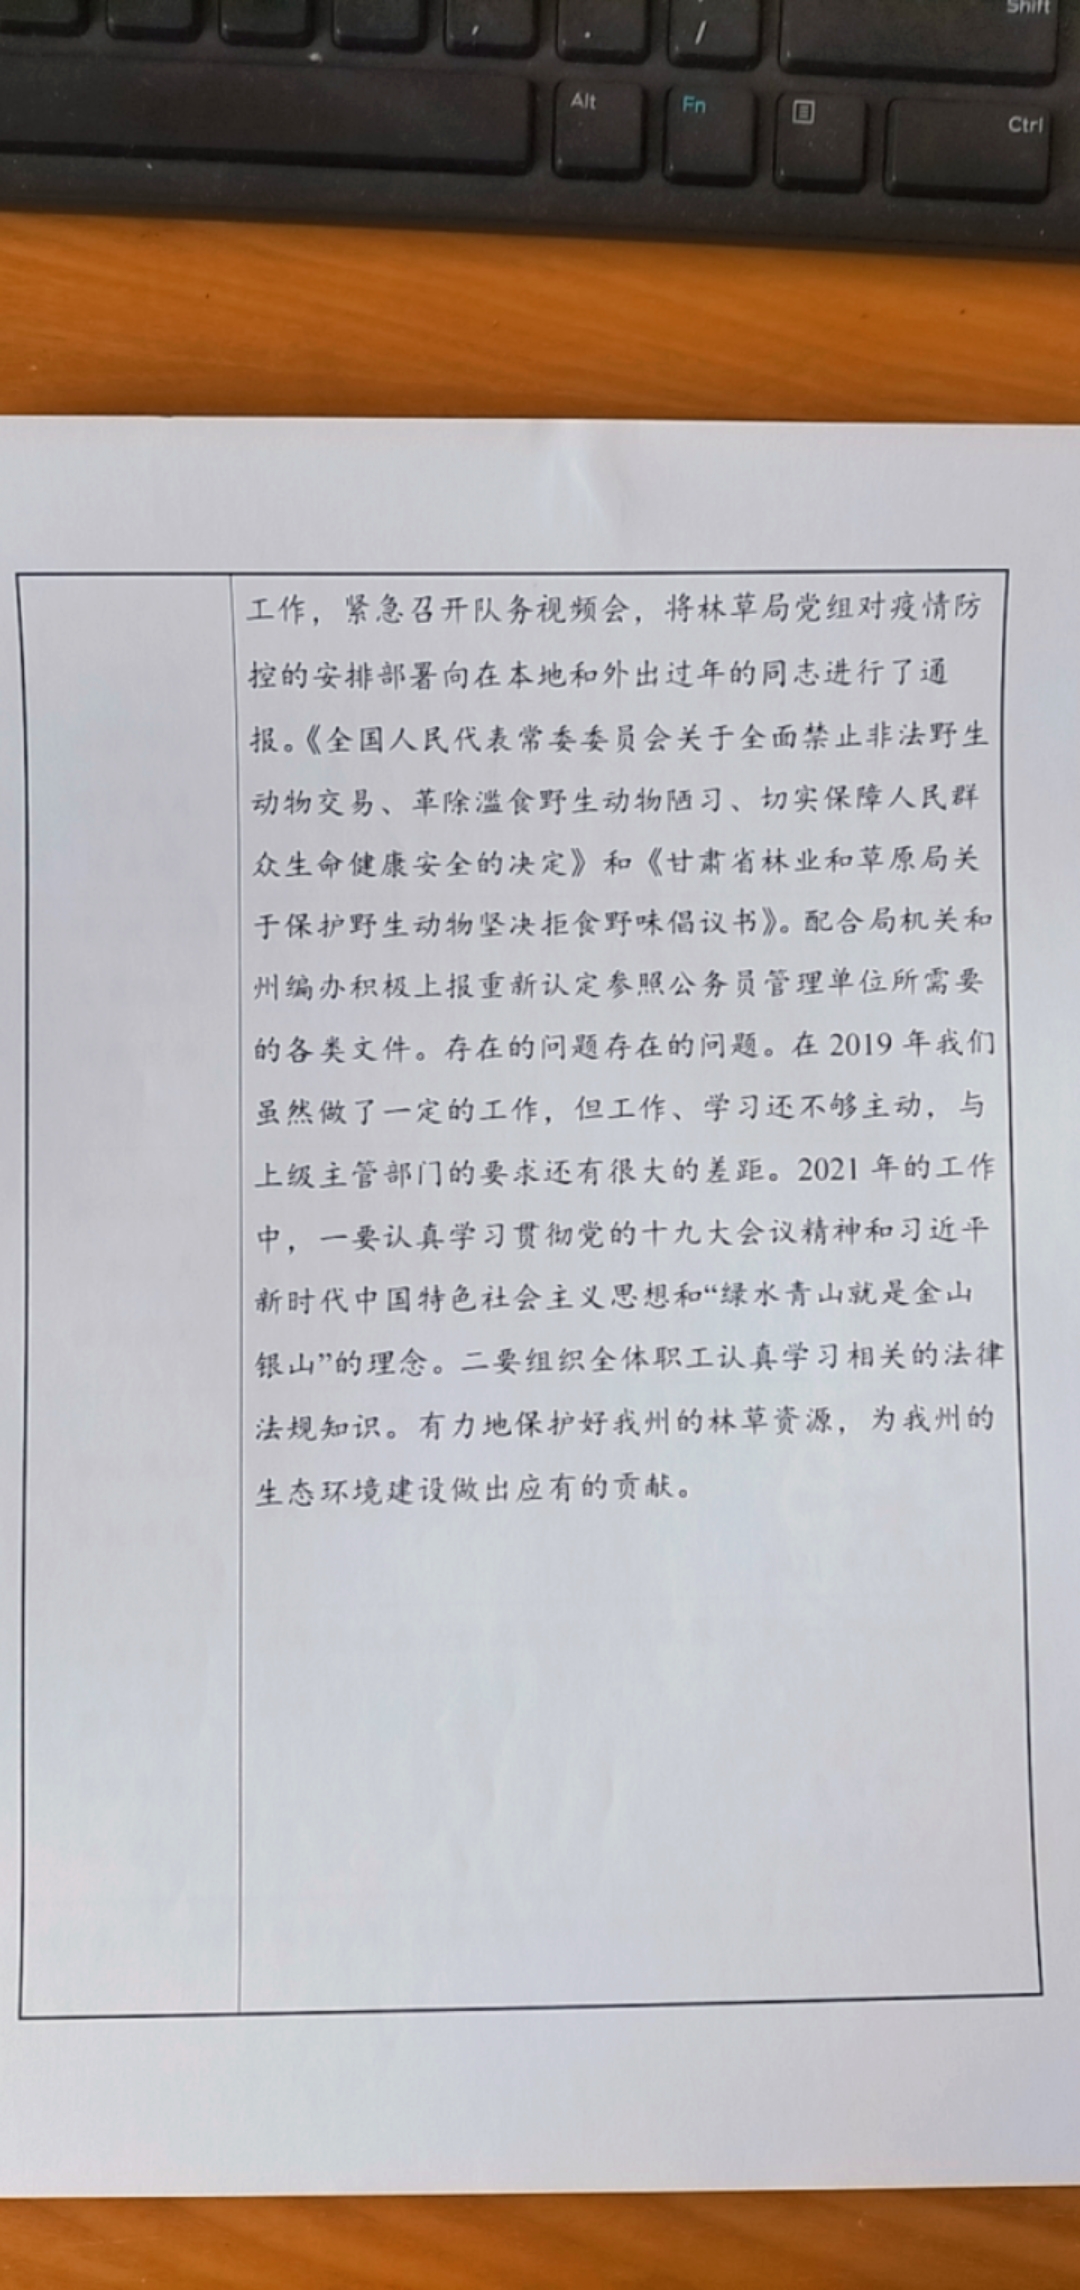 Shift
,
.
/
Alt
Fn
Ctrl
工作，紧急召开队务视频会，将林草局党组对疫情防
控的安排部署向在本地和外出过年的同志进行了通
报。《全国人民代表常委委员会关于全面禁止非法野生
动物交易、革除滥食野生动物陋习、切实保障人民群
众生命健康安全的决定》和《甘肃省林业和草原局关
于保护野生动物坚决拒食野味倡议书》。配合局机关和
州编办积极上报重新认定参照公务员管理单位所需要
的各类文件。存在的问题存在的问题。在 2019 年我们
虽然做了一定的工作，但工作、学习还不够主动，与
上级主管部门的要求还有很大的差距。2021 年的工作
中，一要认真学习贯彻党的十九大会议精神和习近平
新时代中国特色社会主义思想和“绿水青山就是金山
银山”的理念。二要组织全体职工认真学习相关的法律
法规知识。有力地保护好我州的林草资源，为我州的
生态环境建设做出应有的贡献。